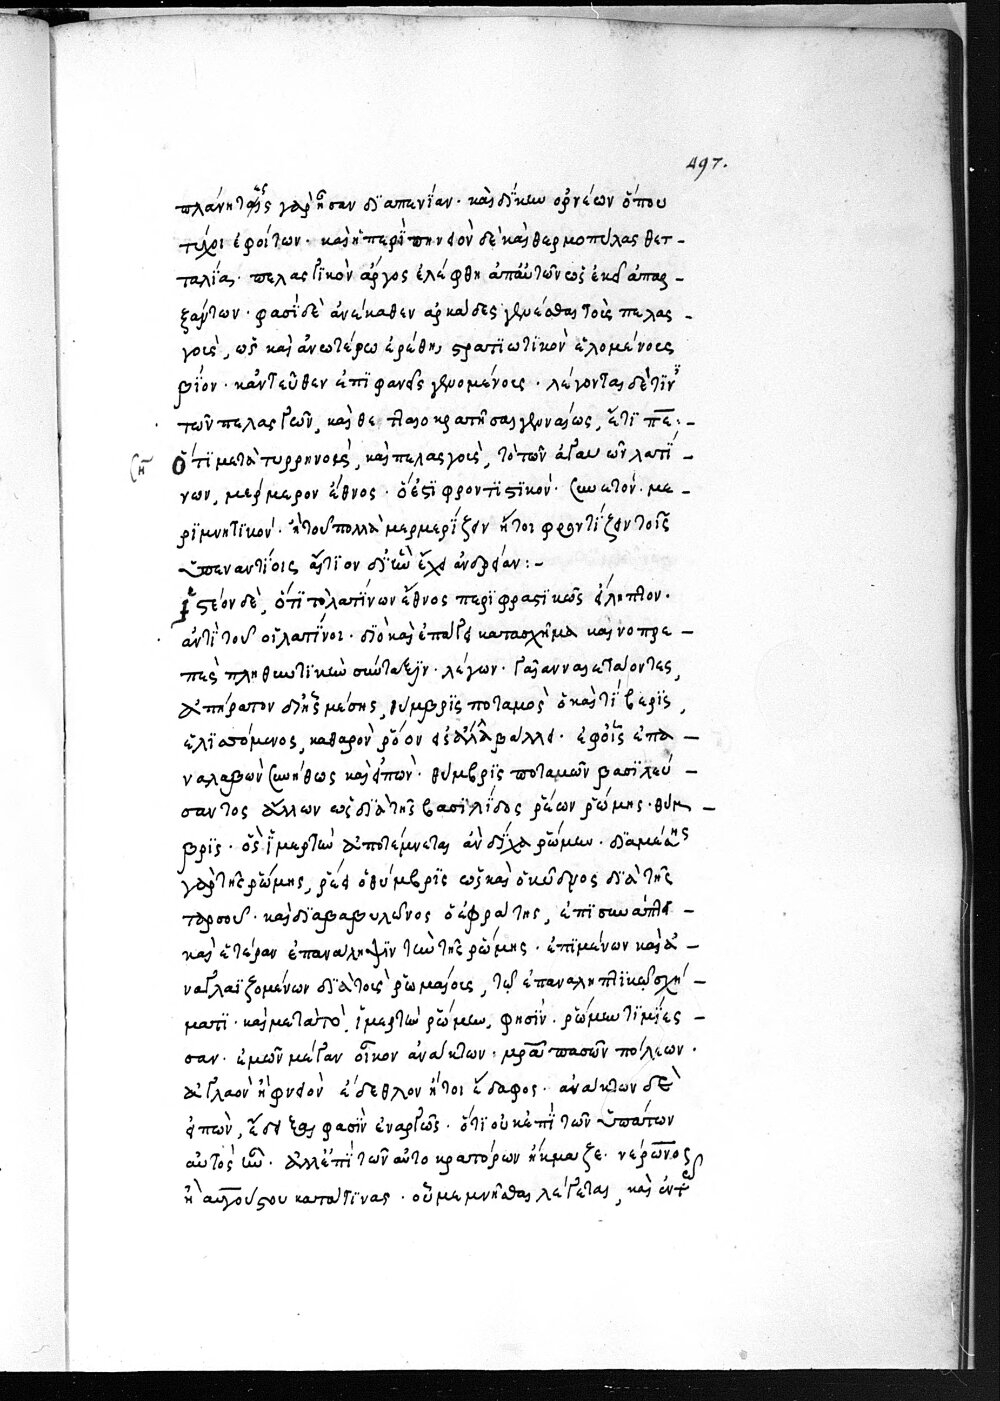 497.
πλάνητες γὰρ ἦσαν δι' ἀπανίαν· καὶ δίκην ὀρνέων ὅπου
τύχοι ἐφοίτων· καὶ ἡ περὶ πηνειὸν δὲ καὶ θερμοπύλας θετ-
ταλία· πελασγικὸν ἄργος ἐλέχθη ἀπ' αὐτῶν ὡς ἐκεῖ ἀπαρ-
ξάντων· φασὶ δὲ ἀνέκαθεν ἀρκάδες γενέσθαι τοὺς πελασ-
γοὺς, ὡς καὶ ἀνωτέρω ἐρέθη, στρατιωτικὸν ἑλομένους
βίον· κἀντεῦθεν ἐπιφανεῖς γενομένους· λέγονται δέ τινες
τῶν πελασγῶν, καὶ θετταλοκρατῆσαι γενναίως, ἔτι πε:-
Ὅτι μετὰ τυρρηνοὺς, καὶ πελασγοὺς, τὸ τῶν ἀγαυῶν λατί-
νων, μέρμερον ἔθνος· ὅ ἐστι φροντιστικόν· συνετόν· με-
ριμνητικόν· ἢ τοῦ πολλὰ μερμερίζειν ἤτοι φροντίζειν τοῖς
ὑπεναντίοις αἴτιον δι' ἣν ἔχει ἀνδρείαν:-
Ἰστέον δὲ, ὅτι τὸ λατίνων ἔθνος περιφραστικῶς εἴληπται·
ἀντὶ τοῦ οἱ λατίνοι· διὸ καὶ ἐπάγει κατασχῆμα καινοπρε-
πὲς πληθυντικὴν σύνταξιν· λέγων· γαῖαν ναιετάοντες,
ἀπήρατον δι' ἧς μέσης, θύμβρις ποταμὸς ὁ καὶ τίβερις,
ἑλισσόμενος, καθαρὸν ῥόον εἰς ἅλα βάλλει· ἐφ' οἷς ἐπα-
ναλαβὼν συνήθως καὶ εἰπὼν· θύμβρις ποταμῶν βασιλεύ-
σαντος ἄλλων ὡς διὰ τῆς βασιλίδος ῥέων ῥώμης· θύμ-
βρις· ὃς ἱμερτὴν ἀποτέμνεται ἄνδιχα ῥώμην· διαμέσης
γὰρ τῆς ῥώμης, ῥέει ὁ θύμβρις ὡς καὶ ὁ κύδνος διὰ τῆς
ταρσοῦ· καὶ διὰ βαβυλῶνος ὁ εὐφράτης, ἐπισυνάπτει
καὶ ἑτέραν ἐπανάληψιν τὴν τῆς ῥώμης· ἐπιμένων καὶ ἀ-
ναγλαϊζομένων διὰ τοὺς ῥωμαίους, τῷ ἐπαναληπτικῷ σχή-
ματι· καὶ μετὰ τὸ, ἱμερτὴν ῥώμην, φησὶν· ῥώμην τιμήεσ-
σαν· ἐμῶν μέγαν οἶκον ἀνάκτων· μρᾶ πασῶν πολίων·
ἀγλαὸν ἢ ἀφνειὸν ἔδεθλον ἤτοι ἔδαφος· ἀνάκτων δὲ
εἰπὼν, ἔδειξέ φασιν ἐναργῶς· ὅτι οὐκ ἐπὶ τῶν ὑπάτων
αὐτὸς ἦν· ἀλλ' ἐπὶ τῶν αὐτοκρατόρων ἤκμαζε· νέρωνος
ἢ αὐγούστου κατά τινας· οὗ μεμνῆσθαι λέγεται, καὶ ἐν τ